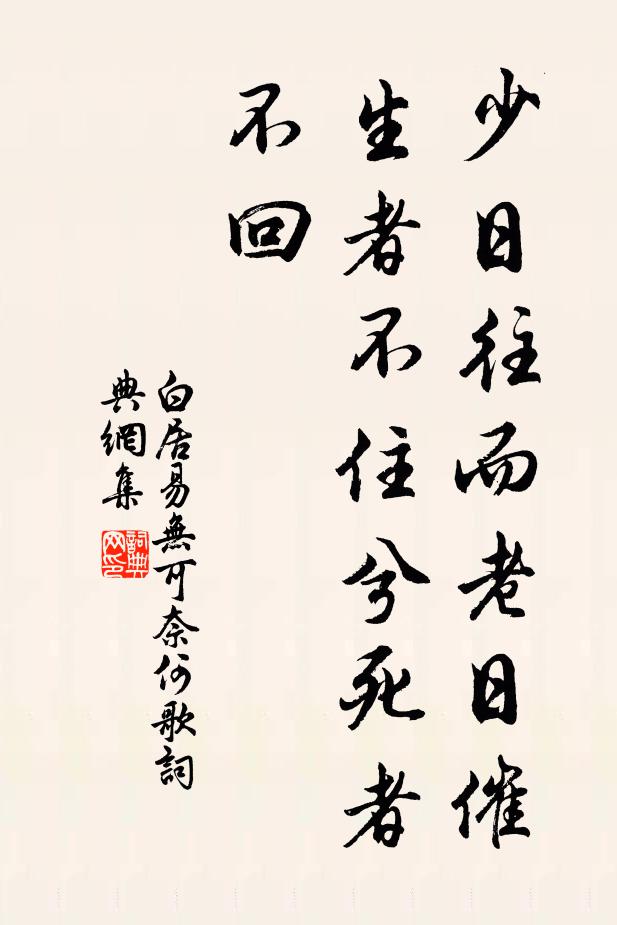 少日往而老日催
生者不住兮死者
不回
白居易無可奈何歌詞
典網集
詞典
网印